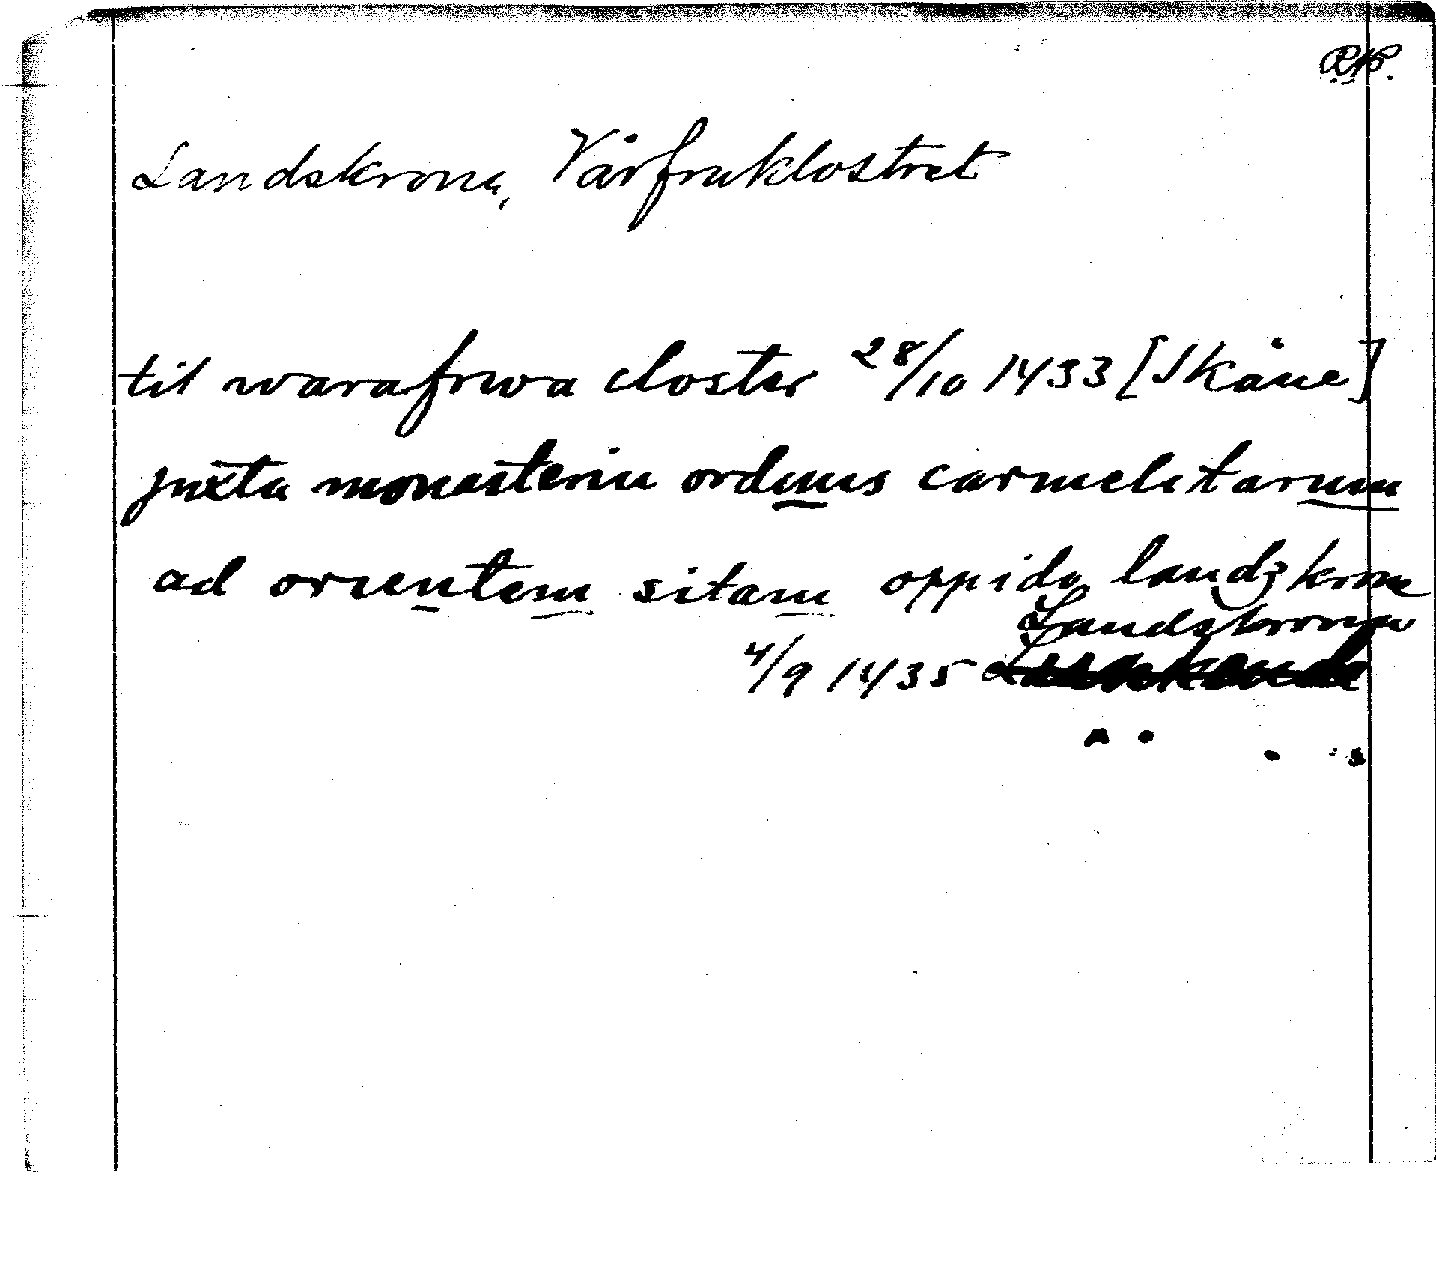 RAP.
Landskrona, Vårfruklostret
til warafrwa closter 28/10 1433 [Skåne]
juxta monasteriu ordinis carmelitarum
ad orientem sitam oppido landzkrone
Landskrona
4/9 1435